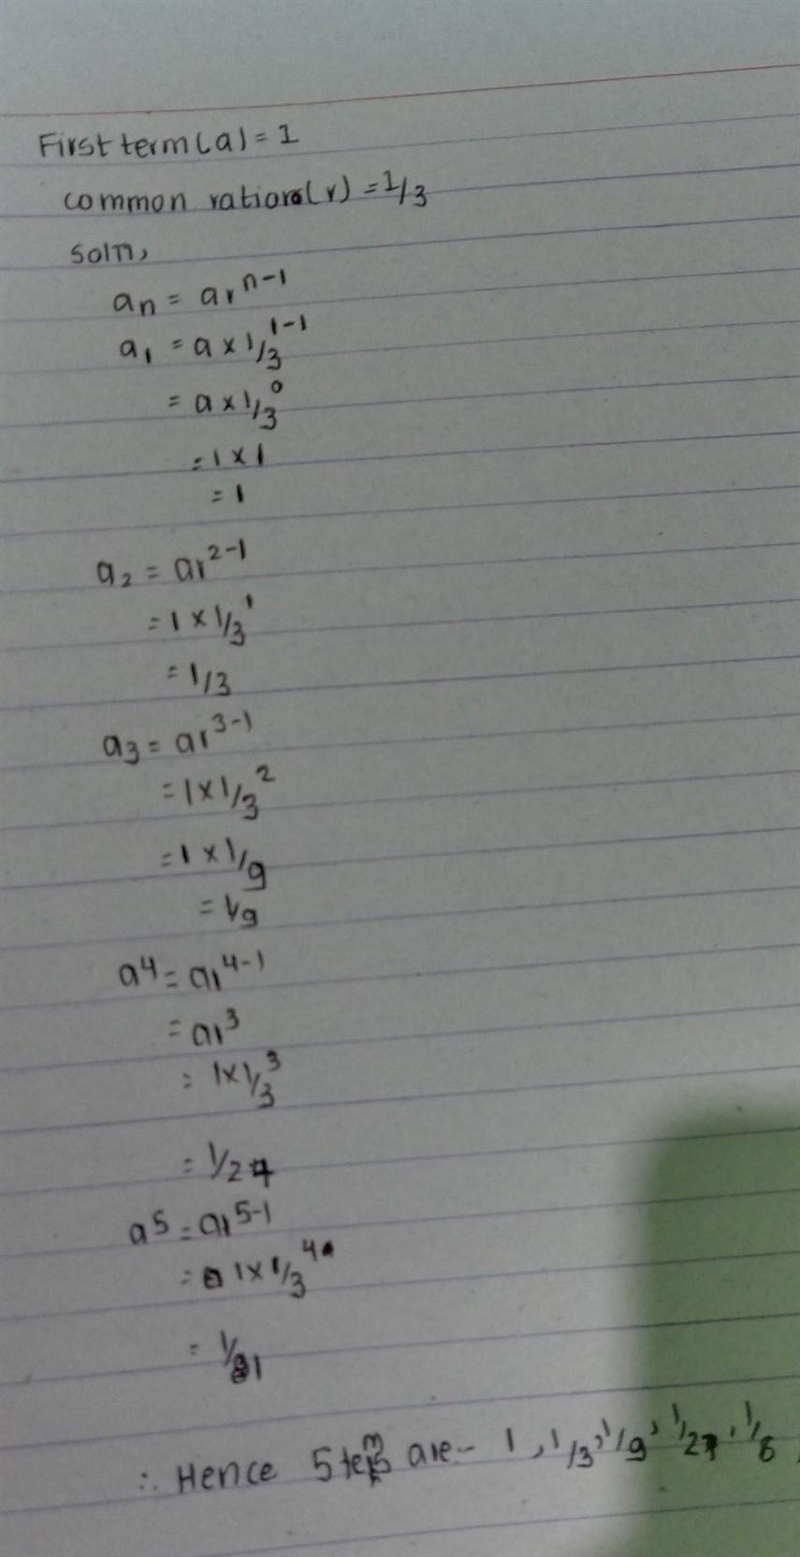 First term(a) = 1
common ration(r) = 1/3
Soln,
aₙ = arⁿ⁻¹
a₁ = a × 1/3¹⁻¹
= a × 1/3⁰
= 1 × 1
= 1
a₂ = ar²⁻¹
= 1 × 1/3¹
= 1/3
a₃ = ar³⁻¹
= 1 × 1/3²
= 1 × 1/9
= 1/9
a⁴ = ar⁴⁻¹
= ar³
= 1 × 1/3³
= 1/27
a⁵ = ar⁵⁻¹
= 1 × 1/3⁴
= 1/81
∴ Hence 5 terms are:- 1, 1/3, 1/9, 1/27, 1/8